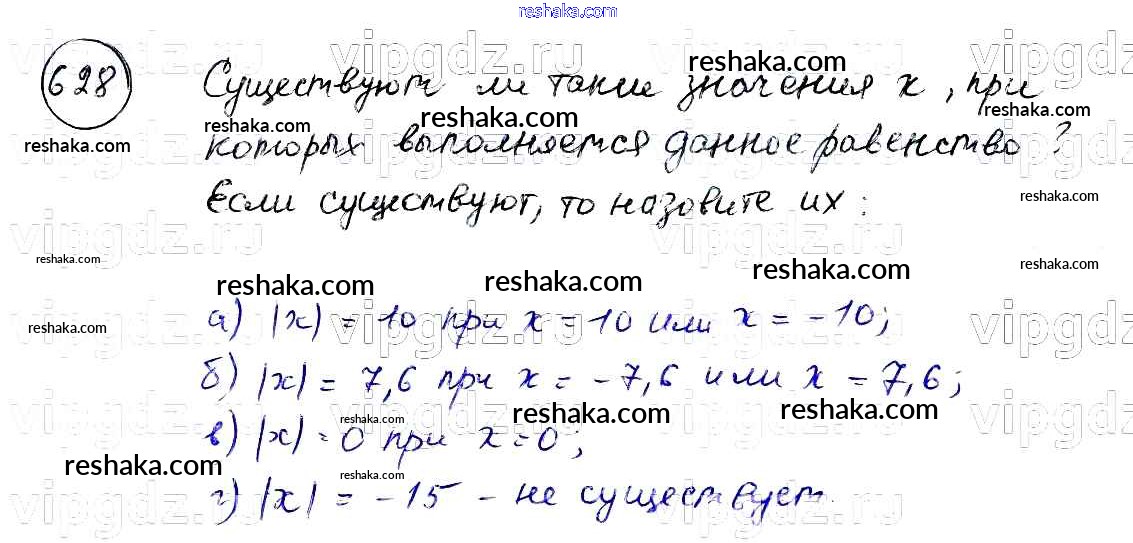 reshaka.com
vipgdz.ru vipgdz.ru vipgdz.ru
628
reshaka.com
Существуют ли такие значения x, при
reshaka.com reshaka.com reshaka.com
reshaka.com
которых выполняется данное равенство?
Если существуют, то назовите их:
reshaka.com
vipgdz.ru vipgdz.ru vipgdz.ru
reshaka.com reshaka.com
reshaka.com reshaka.com reshaka.com
а) |x| = 10 при x = 10 или x = -10;
reshaka.com
vipgdz.ru vipgdz.ru vipgdz.ru
б) |x| = 7,6 при x = -7,6 или x = 7,6;
reshaka.com reshaka.com reshaka.com
vipgdz.ru vipgdz.ru vipgdz.ru
в) |x| = 0 при x = 0;
reshaka.com reshaka.com
г) |x| = -15 - не существует.
vipgdz.ru vipgdz.ru vipgdz.ru